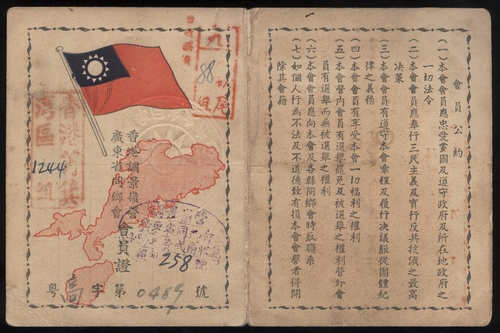 會員公約
(一)本會會員應忠愛黨國及遵守政府及所在地政府之
一切法令
(二)本會會員應奉行三民主義及實行反共抗俄之最高
決策
(三)本會會員有遵守本會章程及履行決議服從團體紀
律之義務
(四)本會會員有享受本會一切福利之權利
(五)本會營內會員有選舉罷免及被選舉之權利營外會
員有選舉而無被選舉之權利
(六)本會會員應向本會及各縣同鄉會時取聯系
(七)如個人行為不法及不道德致有損本會會譽者得開
除其會籍
88
香港調景嶺營
廣東省同鄉會會員證
1244
258
粵高字第0489號